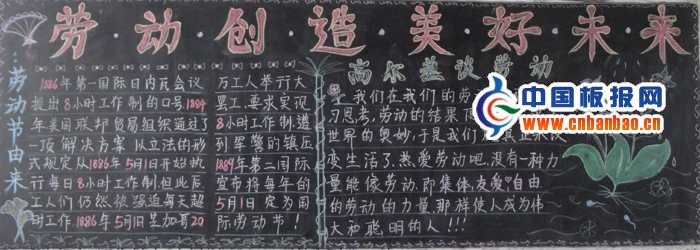 劳·动·创·造·美·好·未·来
劳动节由来
1886年第一国际日内瓦会议
提出8小时工作制的口号.1884
年美国联邦贸易组织通过了
一项解决方案以立法的形
式规定从1886年5月1日开始执
行每日8小时工作制但此后
工人们仍然被强迫每天超
时工作1886年5月1日芝加哥20
万工人举行大
罢工,要求实现
8小时工作制遭
到军警的镇压
1889年第二国际
宣布将每年的
5月1日定为国
际劳动节!
高尔基谈劳动
我们在我们的劳
习思考,劳动的结果
世界的奥妙,于是我们
变生活了.热爱劳动吧.没有一种力
量能像劳动.即集体、友爱、自由
的劳动的力量,那样使人成为伟
大和聪明的人!!!
中国板报网
www.cnbanbao.cn